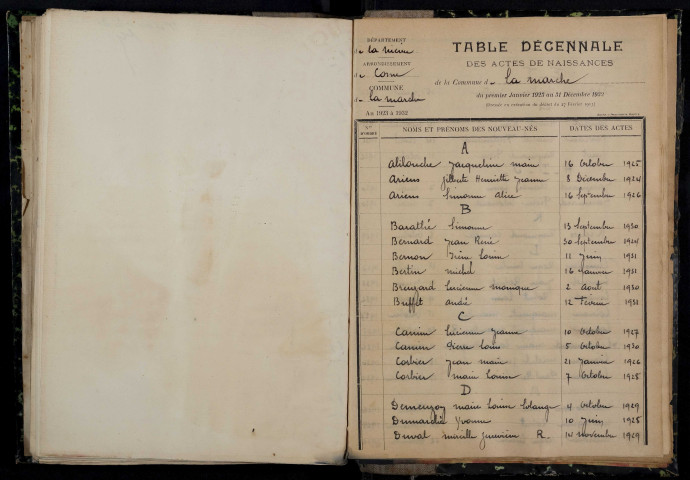 DÉPARTEMENT
de la Nièvre
ARRONDISSEMENT
de Cosne
COMMUNE
de La Marche
An 1923 à 1932
TABLE DÉCENNALE
DES ACTES DE NAISSANCES
de la Commune de La Marche
du premier Janvier 1923 au 31 Décembre 1932
Nos D'ORDRE NOMS ET PRÉNOMS DES NOUVEAU-NÉS DATES DES ACTES
A
Jacqueline Marie 16 Octobre 1925
Ariens Gilberte Henriette Jeanne 8 Décembre 1924
Ariens Simonne Alice 16 Septembre 1926
B
Barathé Simonne 13 Septembre 1930
Bernard Jean René 30 Septembre 1924
Bernon Louise 11 Juin 1931
Bertin Michel 16 Janvier 1931
Breuzard Lucienne Monique 2 Août 1930
Buffet André 12 Février 1931
C
Camin Lucienne Jeanne 10 Octobre 1927
Camin Pierre Louis 5 Octobre 1930
Corbier Jean Marie 21 Janvier 1926
Corbier Marie Louise 7 Octobre 1925
D
Marie Louise Solange 4 Octobre 1929
Yvonne 10 Juin 1925
Duval Mireille Geneviève R. Novembre 1929